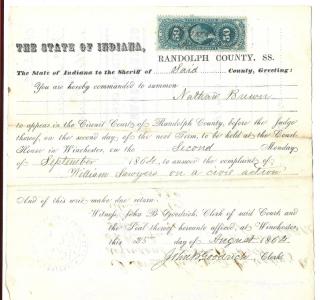 THE STATE OF INDIANA,
RANDOLPH COUNTY, SS.
The State of Indiana to the Sheriff of Said County, Greeting:
You are hereby commanded to summon
Nathan Brewer
to appear in the Circuit Court of Randolph County, before the Judge
thereof, on the second day, of the next Term, to be held at the Court
House in Winchester, on the Second Monday
of September 1864, to answer the complaint of
William Sawyers on a civil action
And of this writ make due return.
Witness, John B Goodrich, Clerk of said Court and
the Seal thereof hereunto affixed, at Winchester,
this 25th day of August 1864
John B Goodrich Clerk